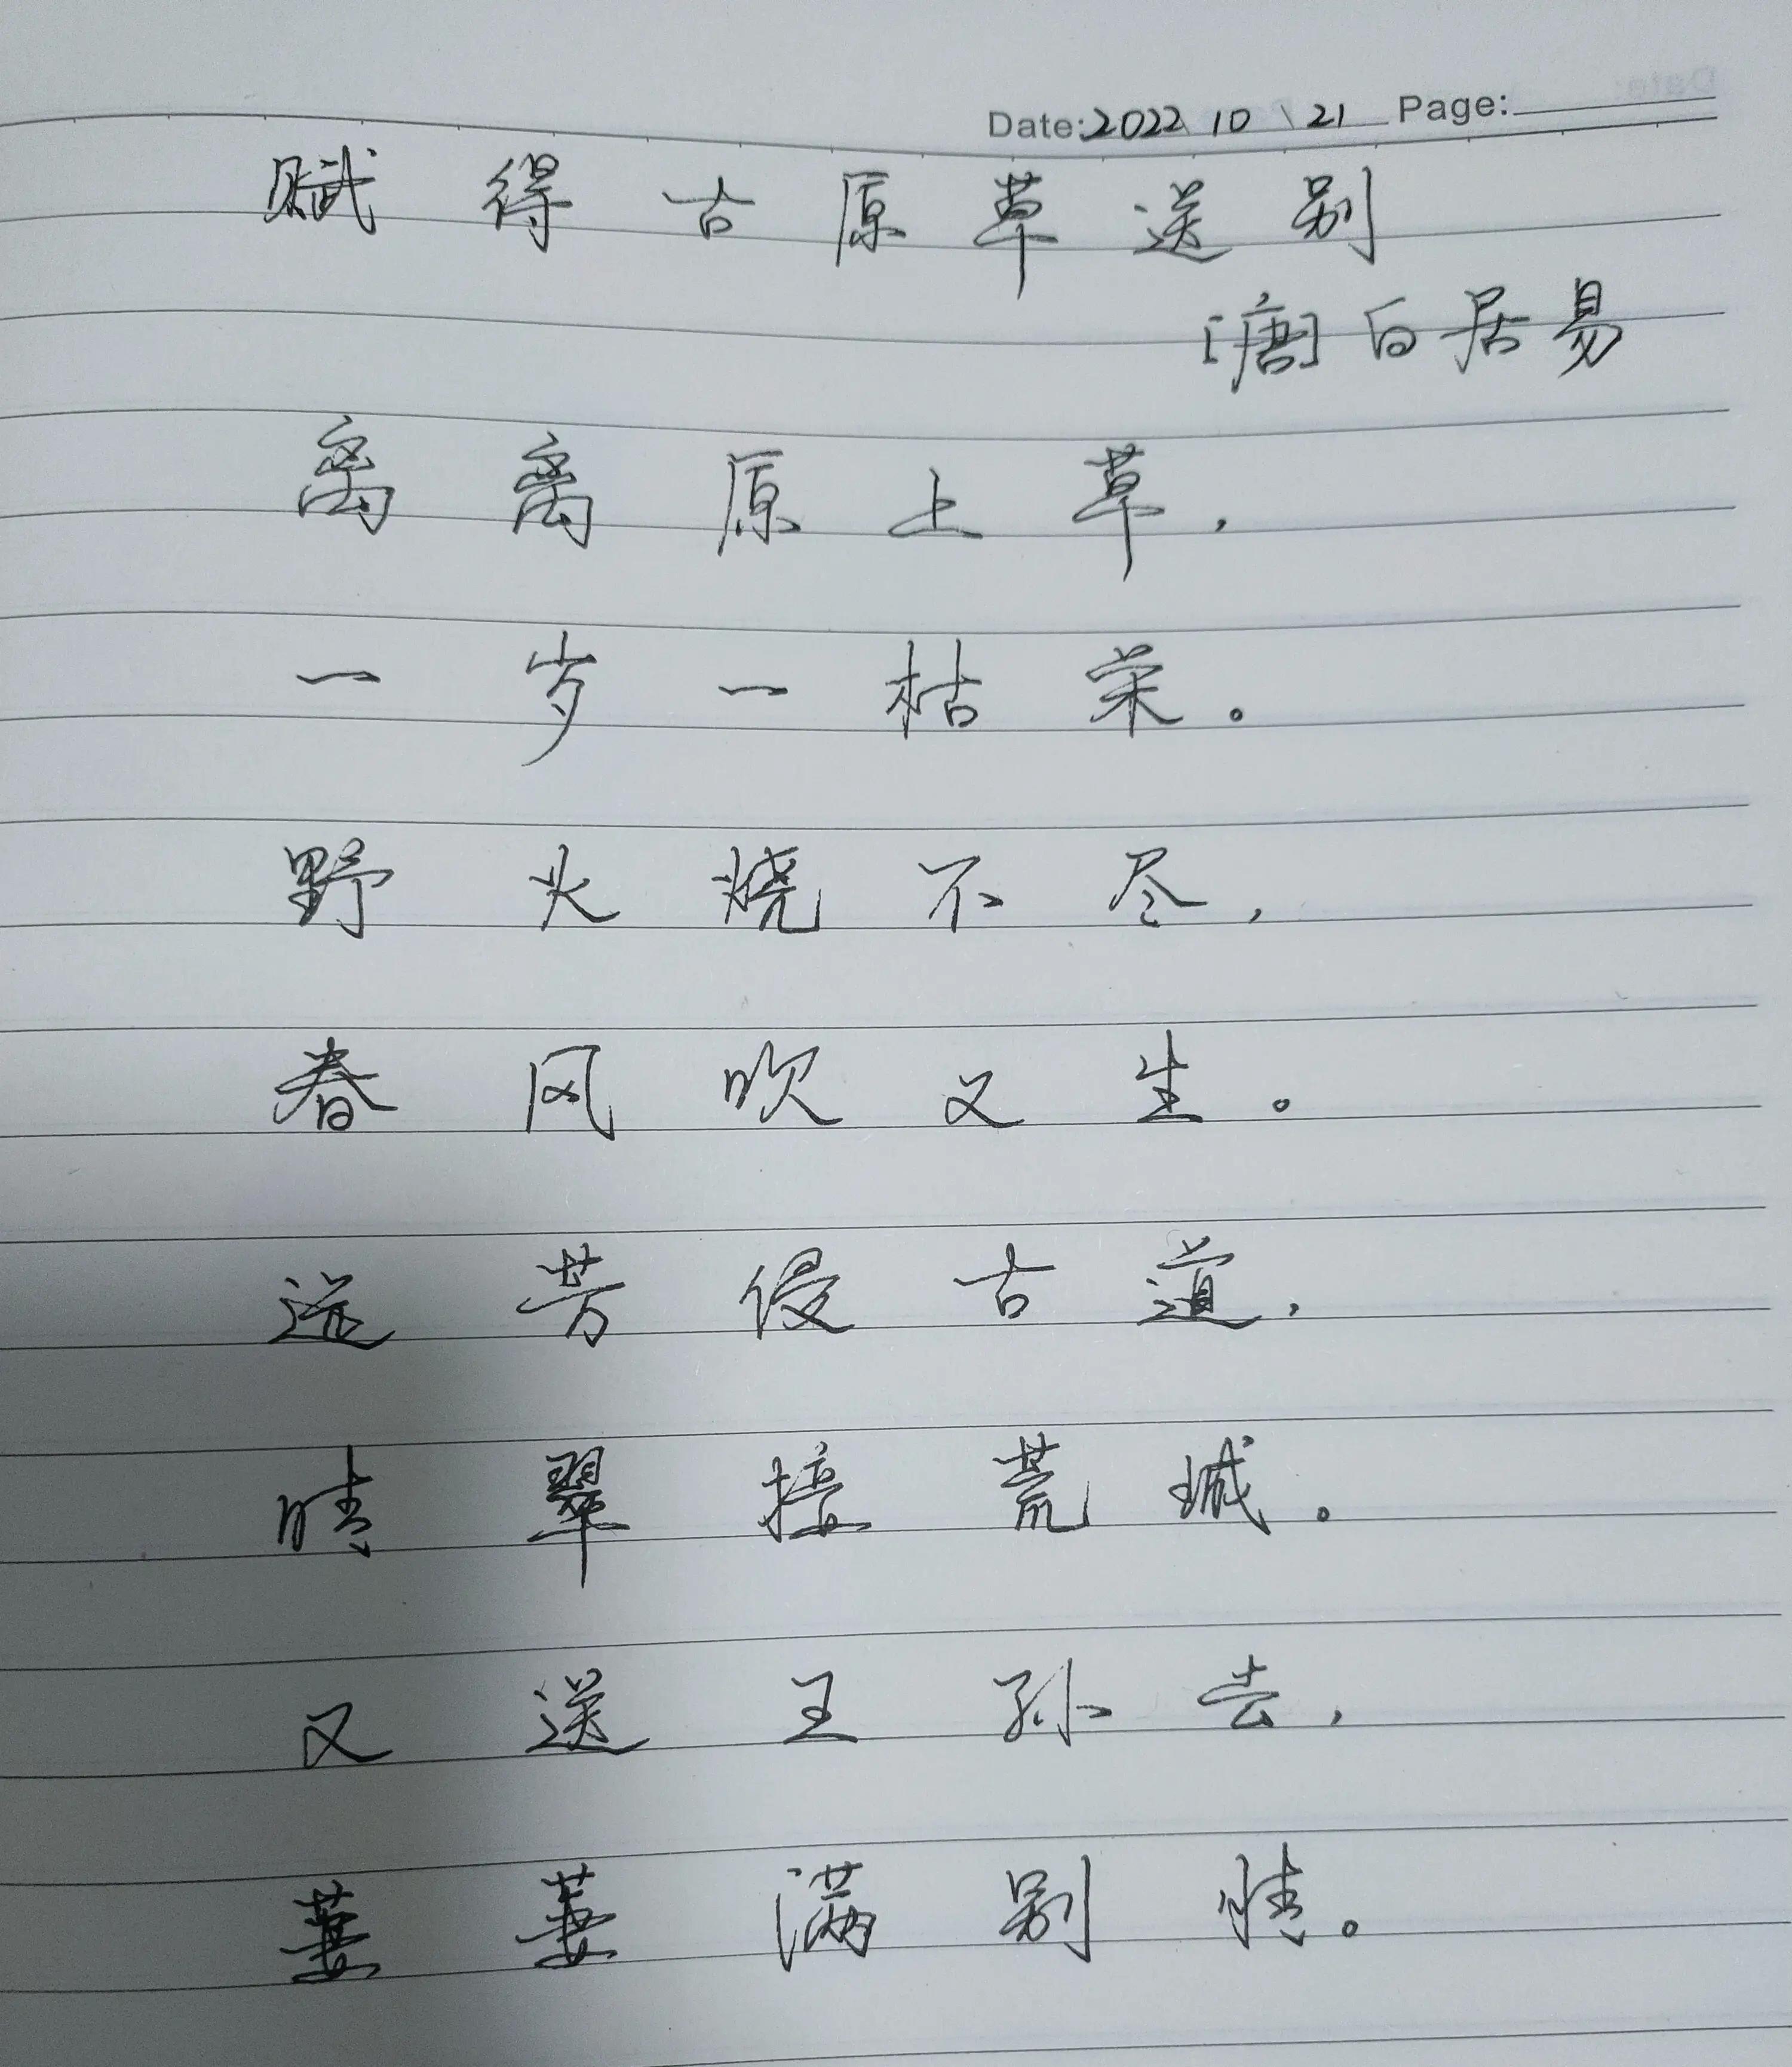 Date: 2022 \ 10 \ 21 Page:
赋得古原草送别
[唐]白居易
离离原上草，
一岁一枯荣。
野火烧不尽，
春风吹又生。
远芳侵古道，
晴翠接荒城。
又送王孙去，
萋萋满别情。